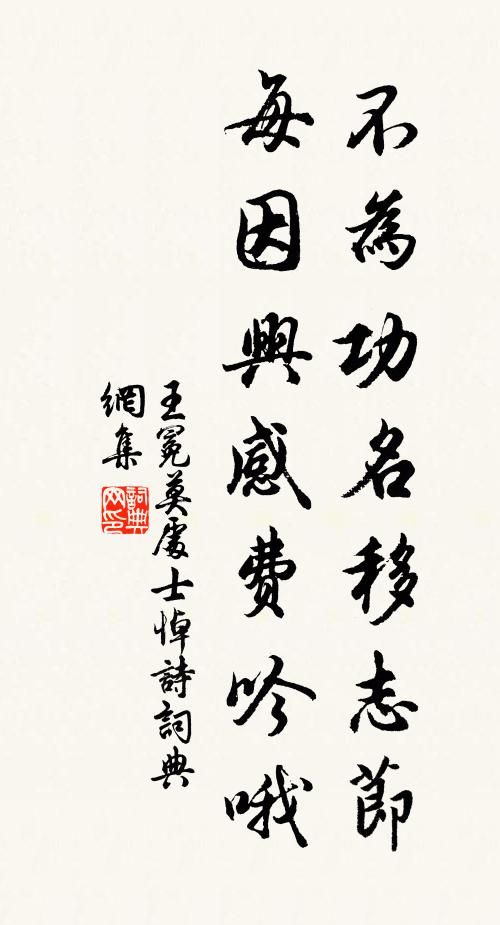 不為功名移志節
每因興感費吟哦
王冕莫處士悼詩詞典
網集
詞典
网印